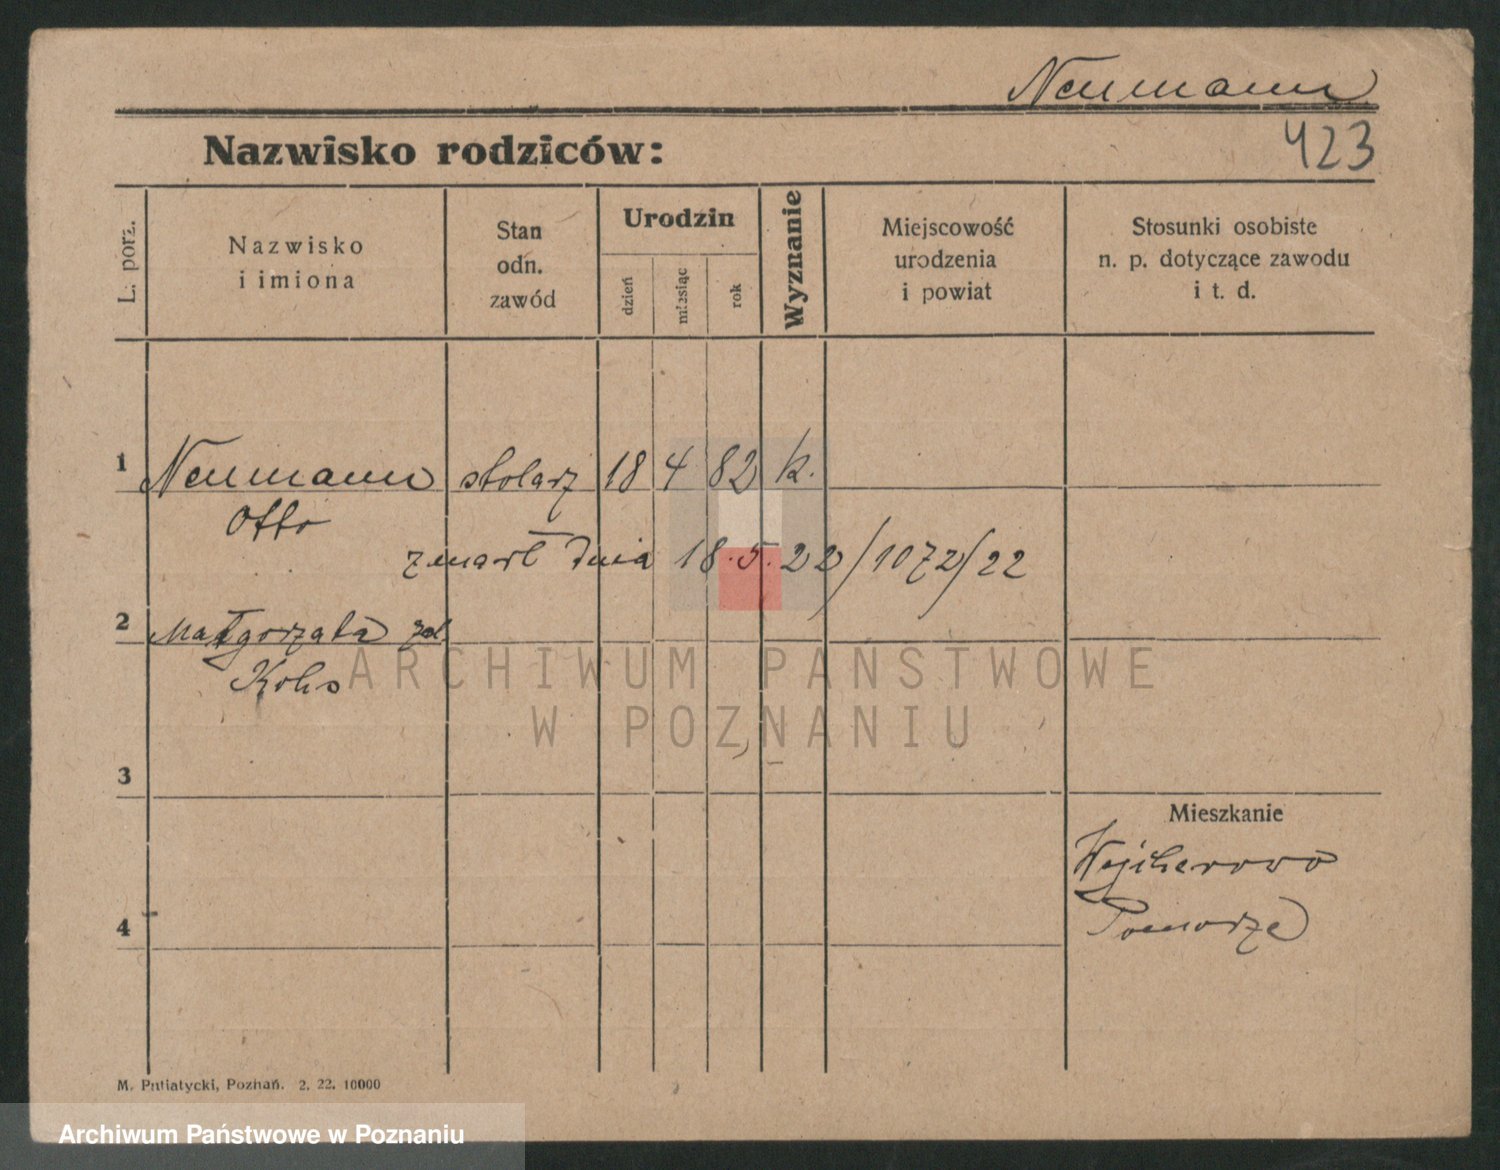 Neumann
423
Nazwisko rodziców:
L. porz.
Nazwisko
i imiona
Stan
odn.
zawód
Urodzin
dzień
miesiąc
rok
Wyznanie
Miejscowość
urodzenia
i powiat
Stosunki osobiste
n. p. dotyczące zawodu
i t. d.
1 Neumann stolarz 18 4 82 k.
Otto
zmarł dnia 18.5.22/1072/22
2 Małgorzata
ARCHIWUM PAŃSTWOWE
W POZNANIU
3
Mieszkanie
Wejherowo
Pomorze
4
M. Putiatycki, Poznań. 2. 22. 10000
Archiwum Państwowe w Poznaniu